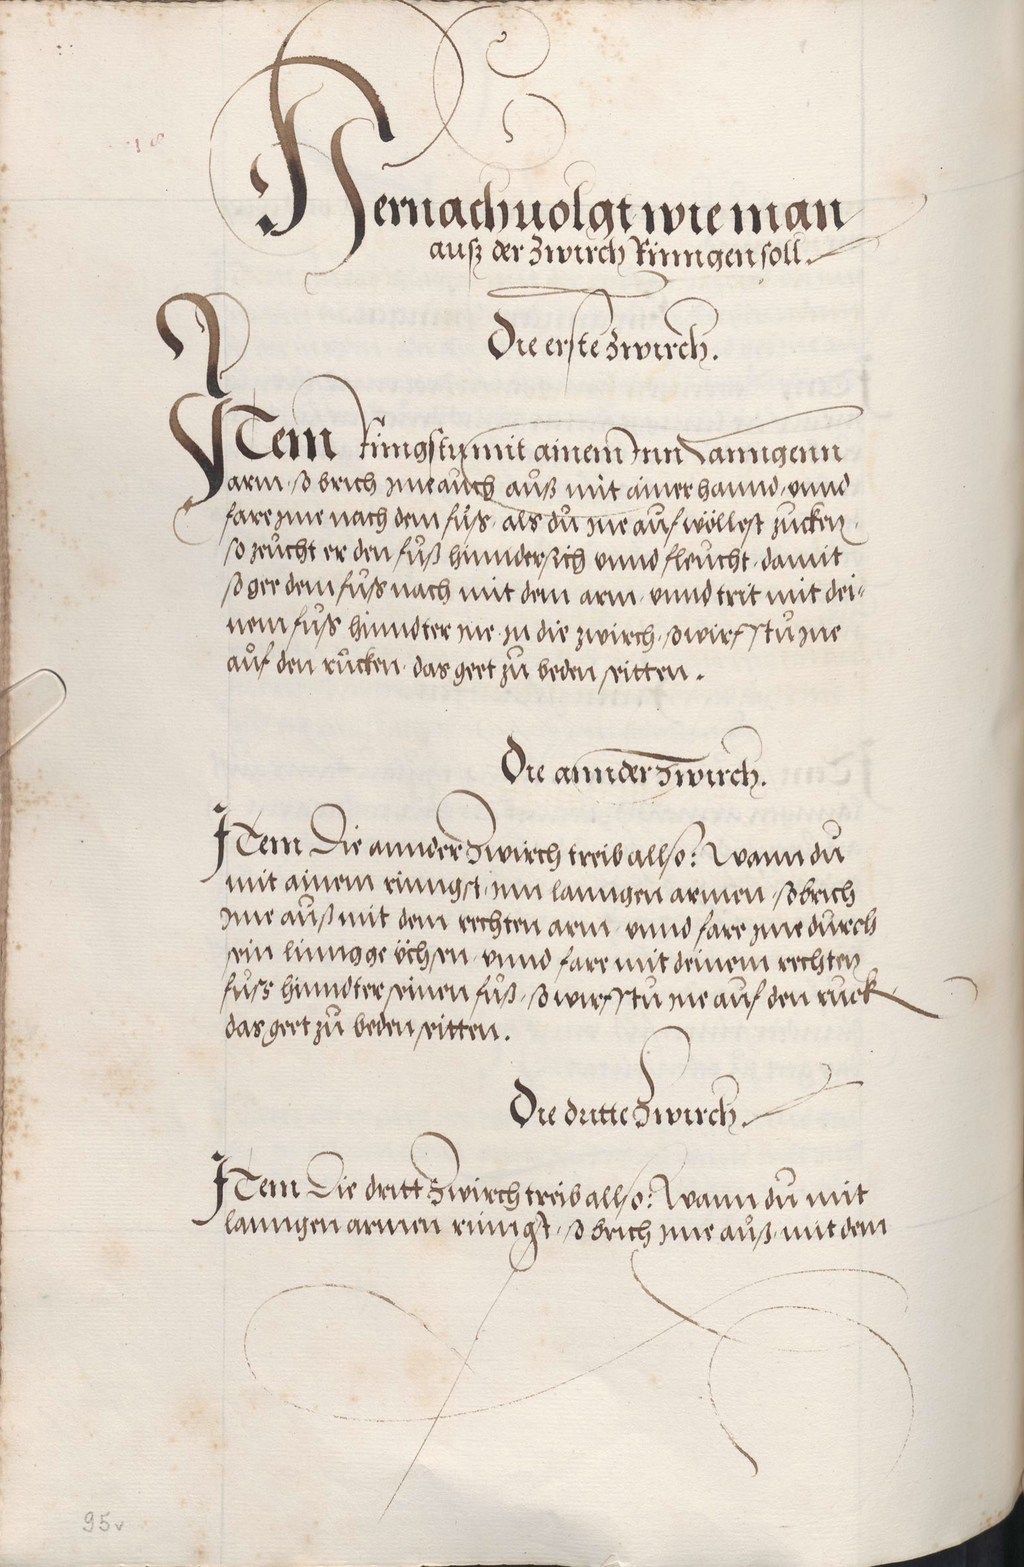 Hernachuolgt wie man
auß der Zwirch Rinngen soll.
Die erste Zwirch.
ITem Ringstu mit ainem Inn Lanngenn
arm, so brich jme auch auß mit ainer hannd, vnnd
fare jme nach dem fůß, als dů jne aůf wöllest zucken,
so zeůcht er den fůß hinndersich vnnd fleůcht, damit
so gee dem fůß nach mit dem arm, vnnd trit mit dei-
nem fůß hinndter jne jn die zwirch, so wirfstů jne
aůf den růcken, das geet zů beden seitten.
Die annder Zwirch.
ITem Die annder Zwirch treib allso: Wann dů
mit ainem rinngst, jnn lanngen armen, so brich
jme aůß mit dem rechten arm, vnnd fare jme důrch
sein linngge ůchsen, vnnd fare mit deinem rechten
fůß hinndter seinen fůß, so wirfstů jne aůf den růck
das geet zů beden seitten.
Die dritte Zwirch.
ITem Die dritt Zwirch treib allso: Wann dů mit
lanngen armen rinngst, so brich jme aůß, mit dem
95v